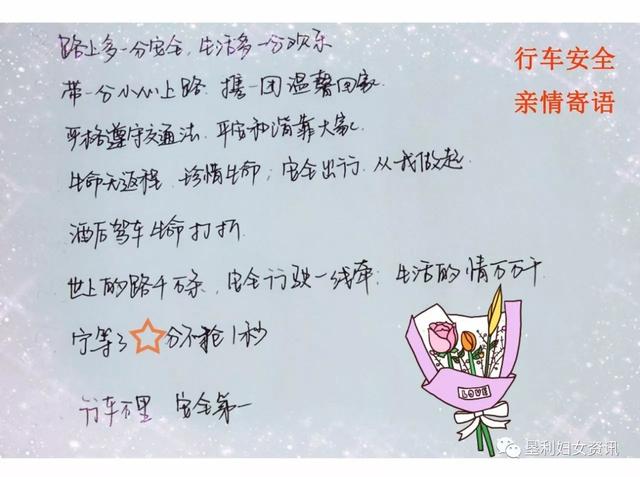 行车安全
亲情寄语
路上多一分安全,生活多一分欢乐
带一分小心上路.携一团温馨回家.
严格遵守交通法.平安和谐靠大家.
生命无返程.珍惜生命;安全出行.从我做起.
酒后驾车生命打折.
世上的路千万条,安全行驶一线牵;生活的情万万千.
宁等3分不抢1秒
行车万里 安全第一
LOVE
垦利妇女资讯